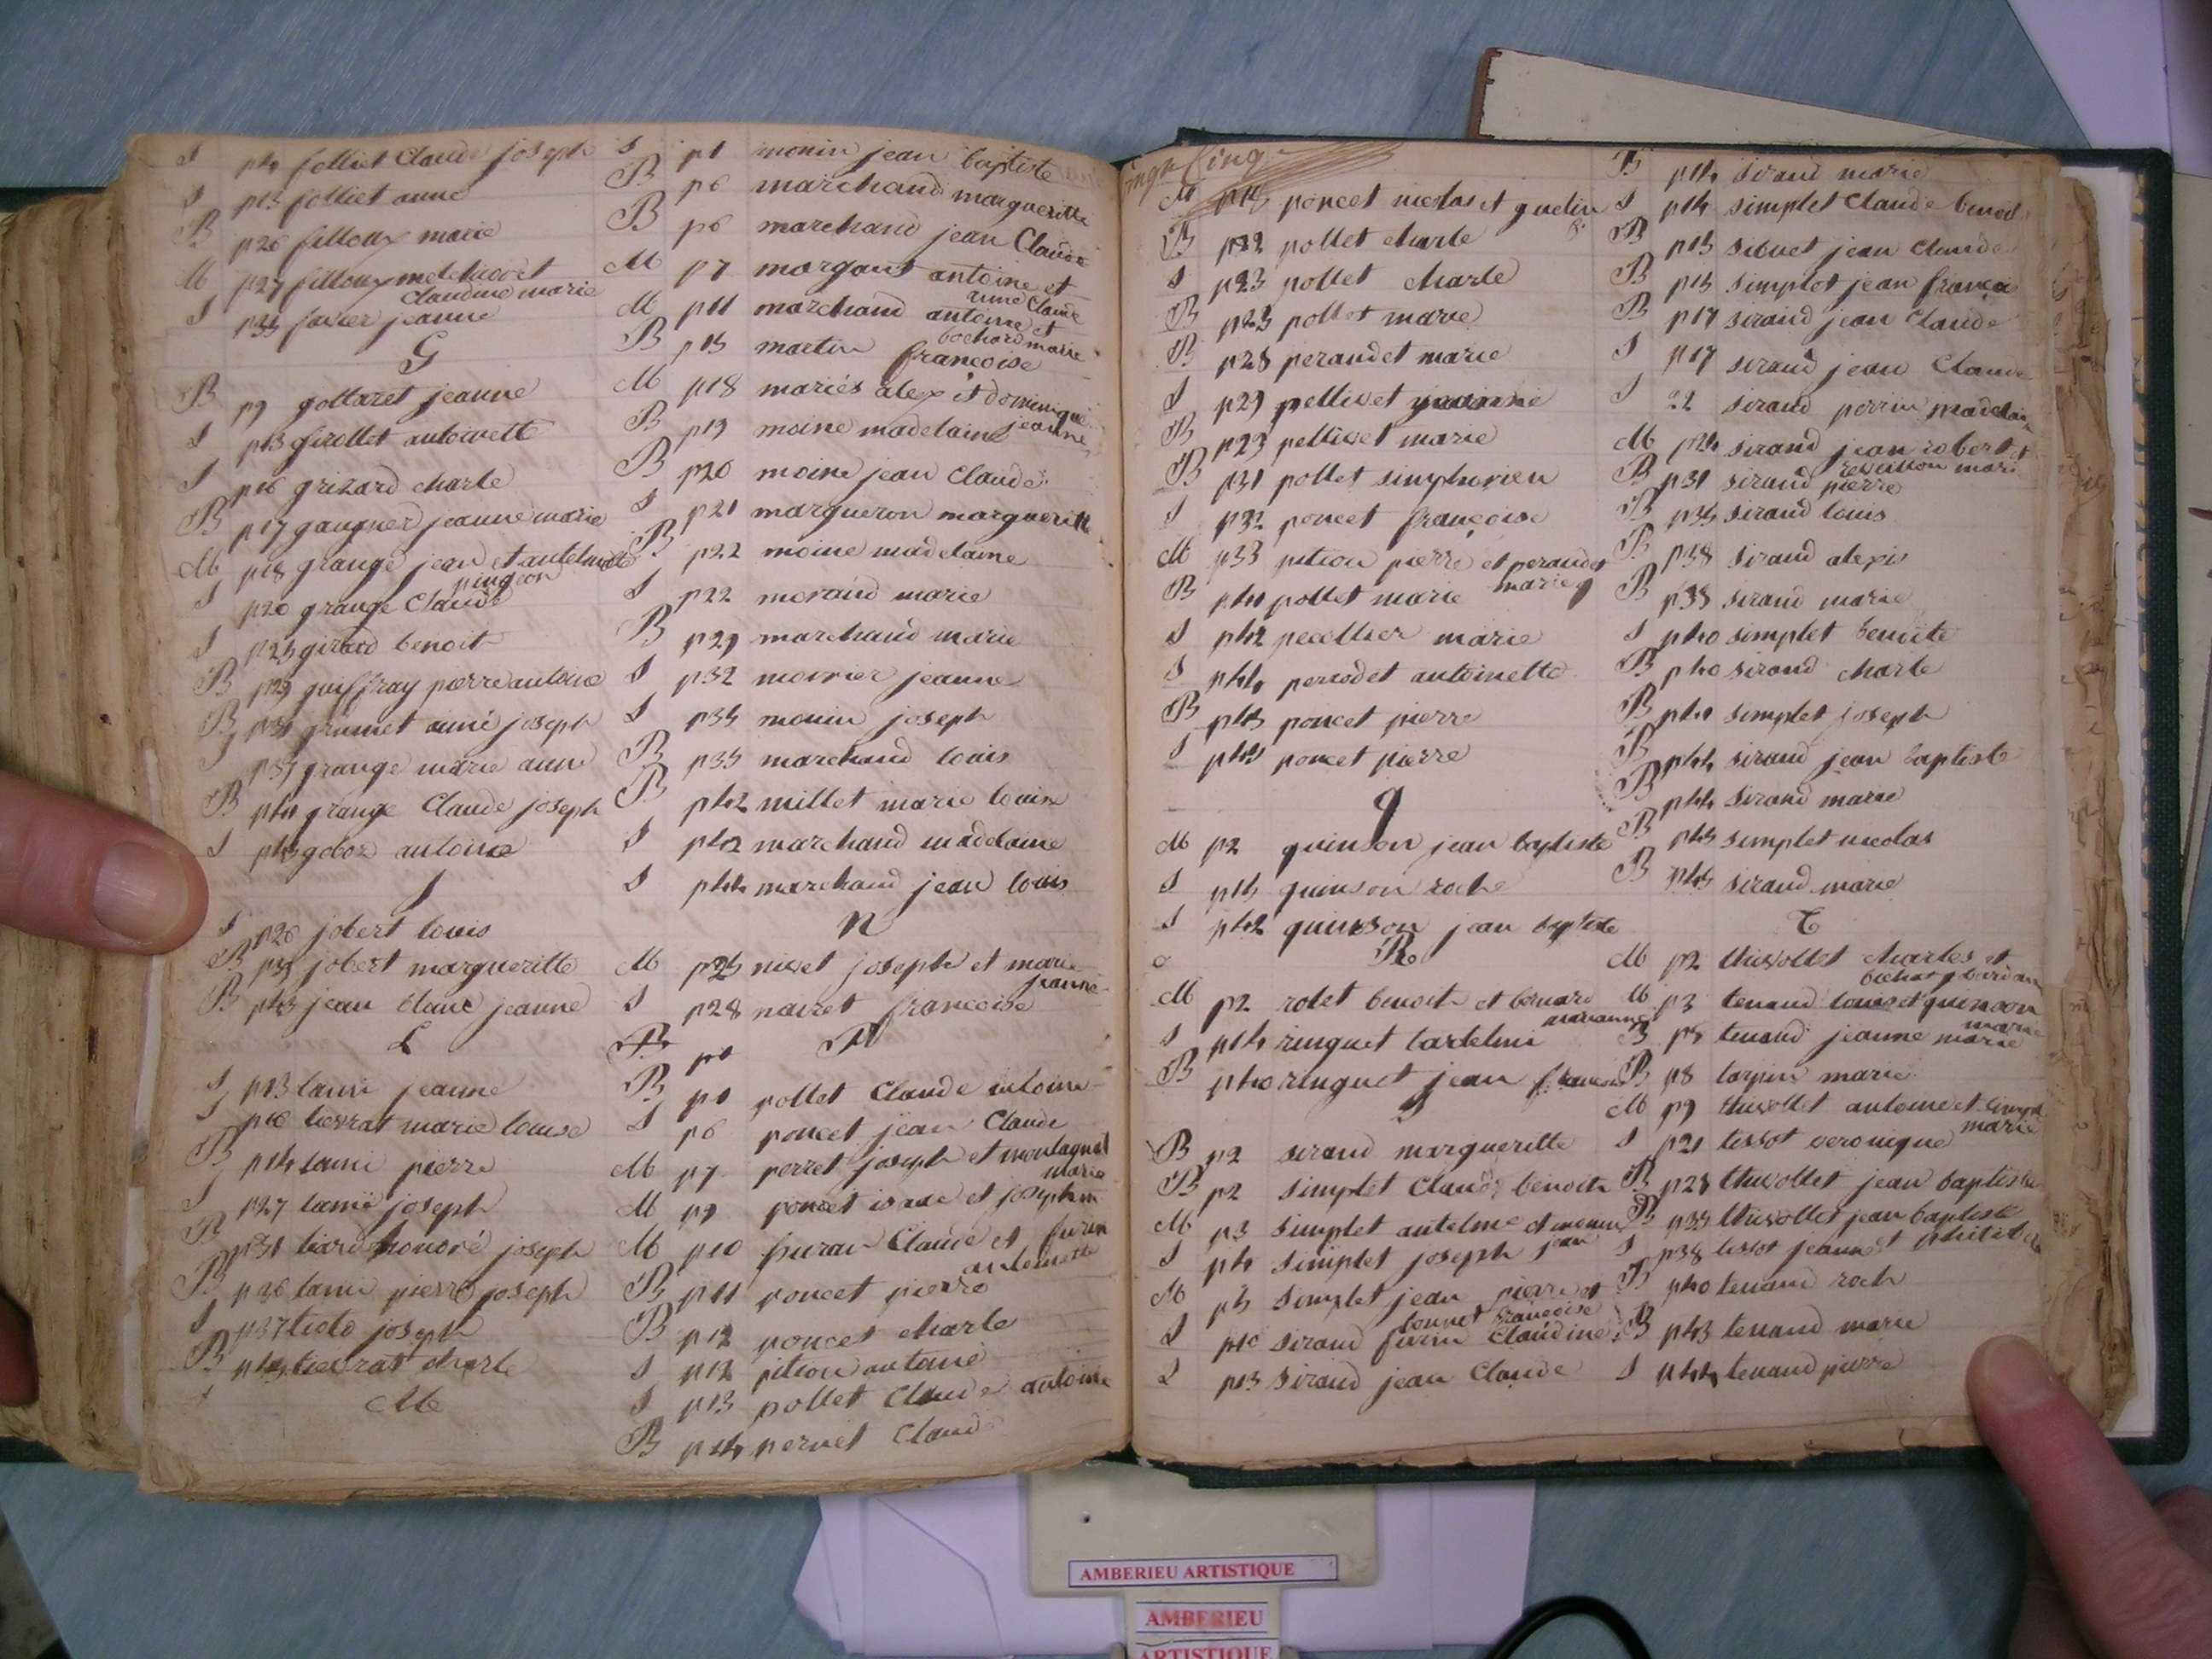 S p4 folliet Claude joseph
S p15 folliet anne
B p26 filloux marie
M p27 filloux melchior et
Claudine marie
S p35 favier jeanne
G
B p9 gollaret jeanne
S p13 girollet antoinette
S p16 grizard charle
B p17 jeanne marie
M p18 grange jean et
pingeon
S p20 grange Claude
S p25 girard benoit
B p29 guiffray pierre antoine
B p31 grumet aimé joseph
S p37 grange marie anne
B grange Claude joseph
S antoine
J
S p26 jobert louis
B jobert margueritte
B p43 jean blanc jeanne
L
S p13 lami jeanne
S p16 marie louise
B p14 lami pierre
S p27 lamï joseph
p31 honoré joseph
B p36 lami pierre joseph
S p37 joseph
B charle
M
S p1 monin jean baptiste
B p6 marchand margueritte
B p6 marchand jean Claude
M p7 morgant antoine et
Claude
M p11 marchand antoine et
bochard marie
B p15 martin françoise
M p18 mariés alex et dominique
jeanne
B p19 moine madelaine
B p20 moine jean Claude
S p21 margueron margueritte
B p22 moine madelaine
S p22 morand marie
B p29 marchand marie
S p32 jeanne
S p35 monin joseph
B p35 marchand louis
B p42 millet marie louise
S p42 marchand madelaine
S p44 marchand jean louis
N
M p25 nivet joseph et marie
jeanne
S p28 françoise
B p1 P
B p1 pollet Claude antoine
S p6 poncet jean Claude
M p7 perret joseph et montagnat
marie
M p9 poncet et
M p10 Claude et
antoinette
B p11 poncet pierre
B p12 poncet charle
S p12 pition antoine
S p13 pollet Claude antoine
B p14 pernet Claud
M p18 poncet nicolas et
B p22 pollet charle
S p23 pollet charle
B p23 pollet marie
B p28 peraudet marie
S p29 pellivet
B p23 pellivet marie
B p31 pollet simphorien
S p32 poncet françoise
M p33 pition pierre et peraudet
marie
B p41 pollet marie
S p42 marie
S p44 antoinette
B p45 poncet pierre
S p45 poncet pierre
q
M p2 quinson jean baptiste
S p15 quinson roche
S p42 quinson jean baptiste
R
M p2 rolet benoit et bernard
marianne
S p14 ringuet bartelmi
B p40 ringuet jean
S
B p2 sirand margueritte
B p2 simplet Claude benoit
M p3 simplet antelme et
jean
S p4 simplet joseph
M p5 simplet jean pierre et
bonnet françoise
S p10 sirand Claudine
S p13 sirand jean Claude
B p14 sirand marie
S p14 simplet Claude benoit
B p15 sibuet jean Claude
B p15 simplet jean françoi
B p17 sirand jean Claude
S p17 sirand jean Claude
S 22 sirand perrin madelain
M p24 sirand jean robert et
B p31 sirand pierre
B p35 sirand louis
B p38 sirand alexis
B p38 sirand marie
S p40 simplet benoite
B p40 sirand charle
B p41 simplet joseph
B p44 sirand jean baptiste
B p44 sirand marie
B p45 simplet nicolas
B p45 sirand marie
T
M p2 thivollet charles et
M p3 tenand louis et quinson
marie
B p5 tenand jeanne marie
B p8 torpin marie
M p9 thivollet antoine et simplet
marie
S p21 tissot veronique
B p28 thivollet jean baptiste
B p35 thivollet jean baptiste
S p38 tissot jeanne
B p40 tenand roch
B p43 tenand marie
S p44 tenand pierre
AMBERIEU ARTISTIQUE
AMBERIEU
ARTISTIQUE